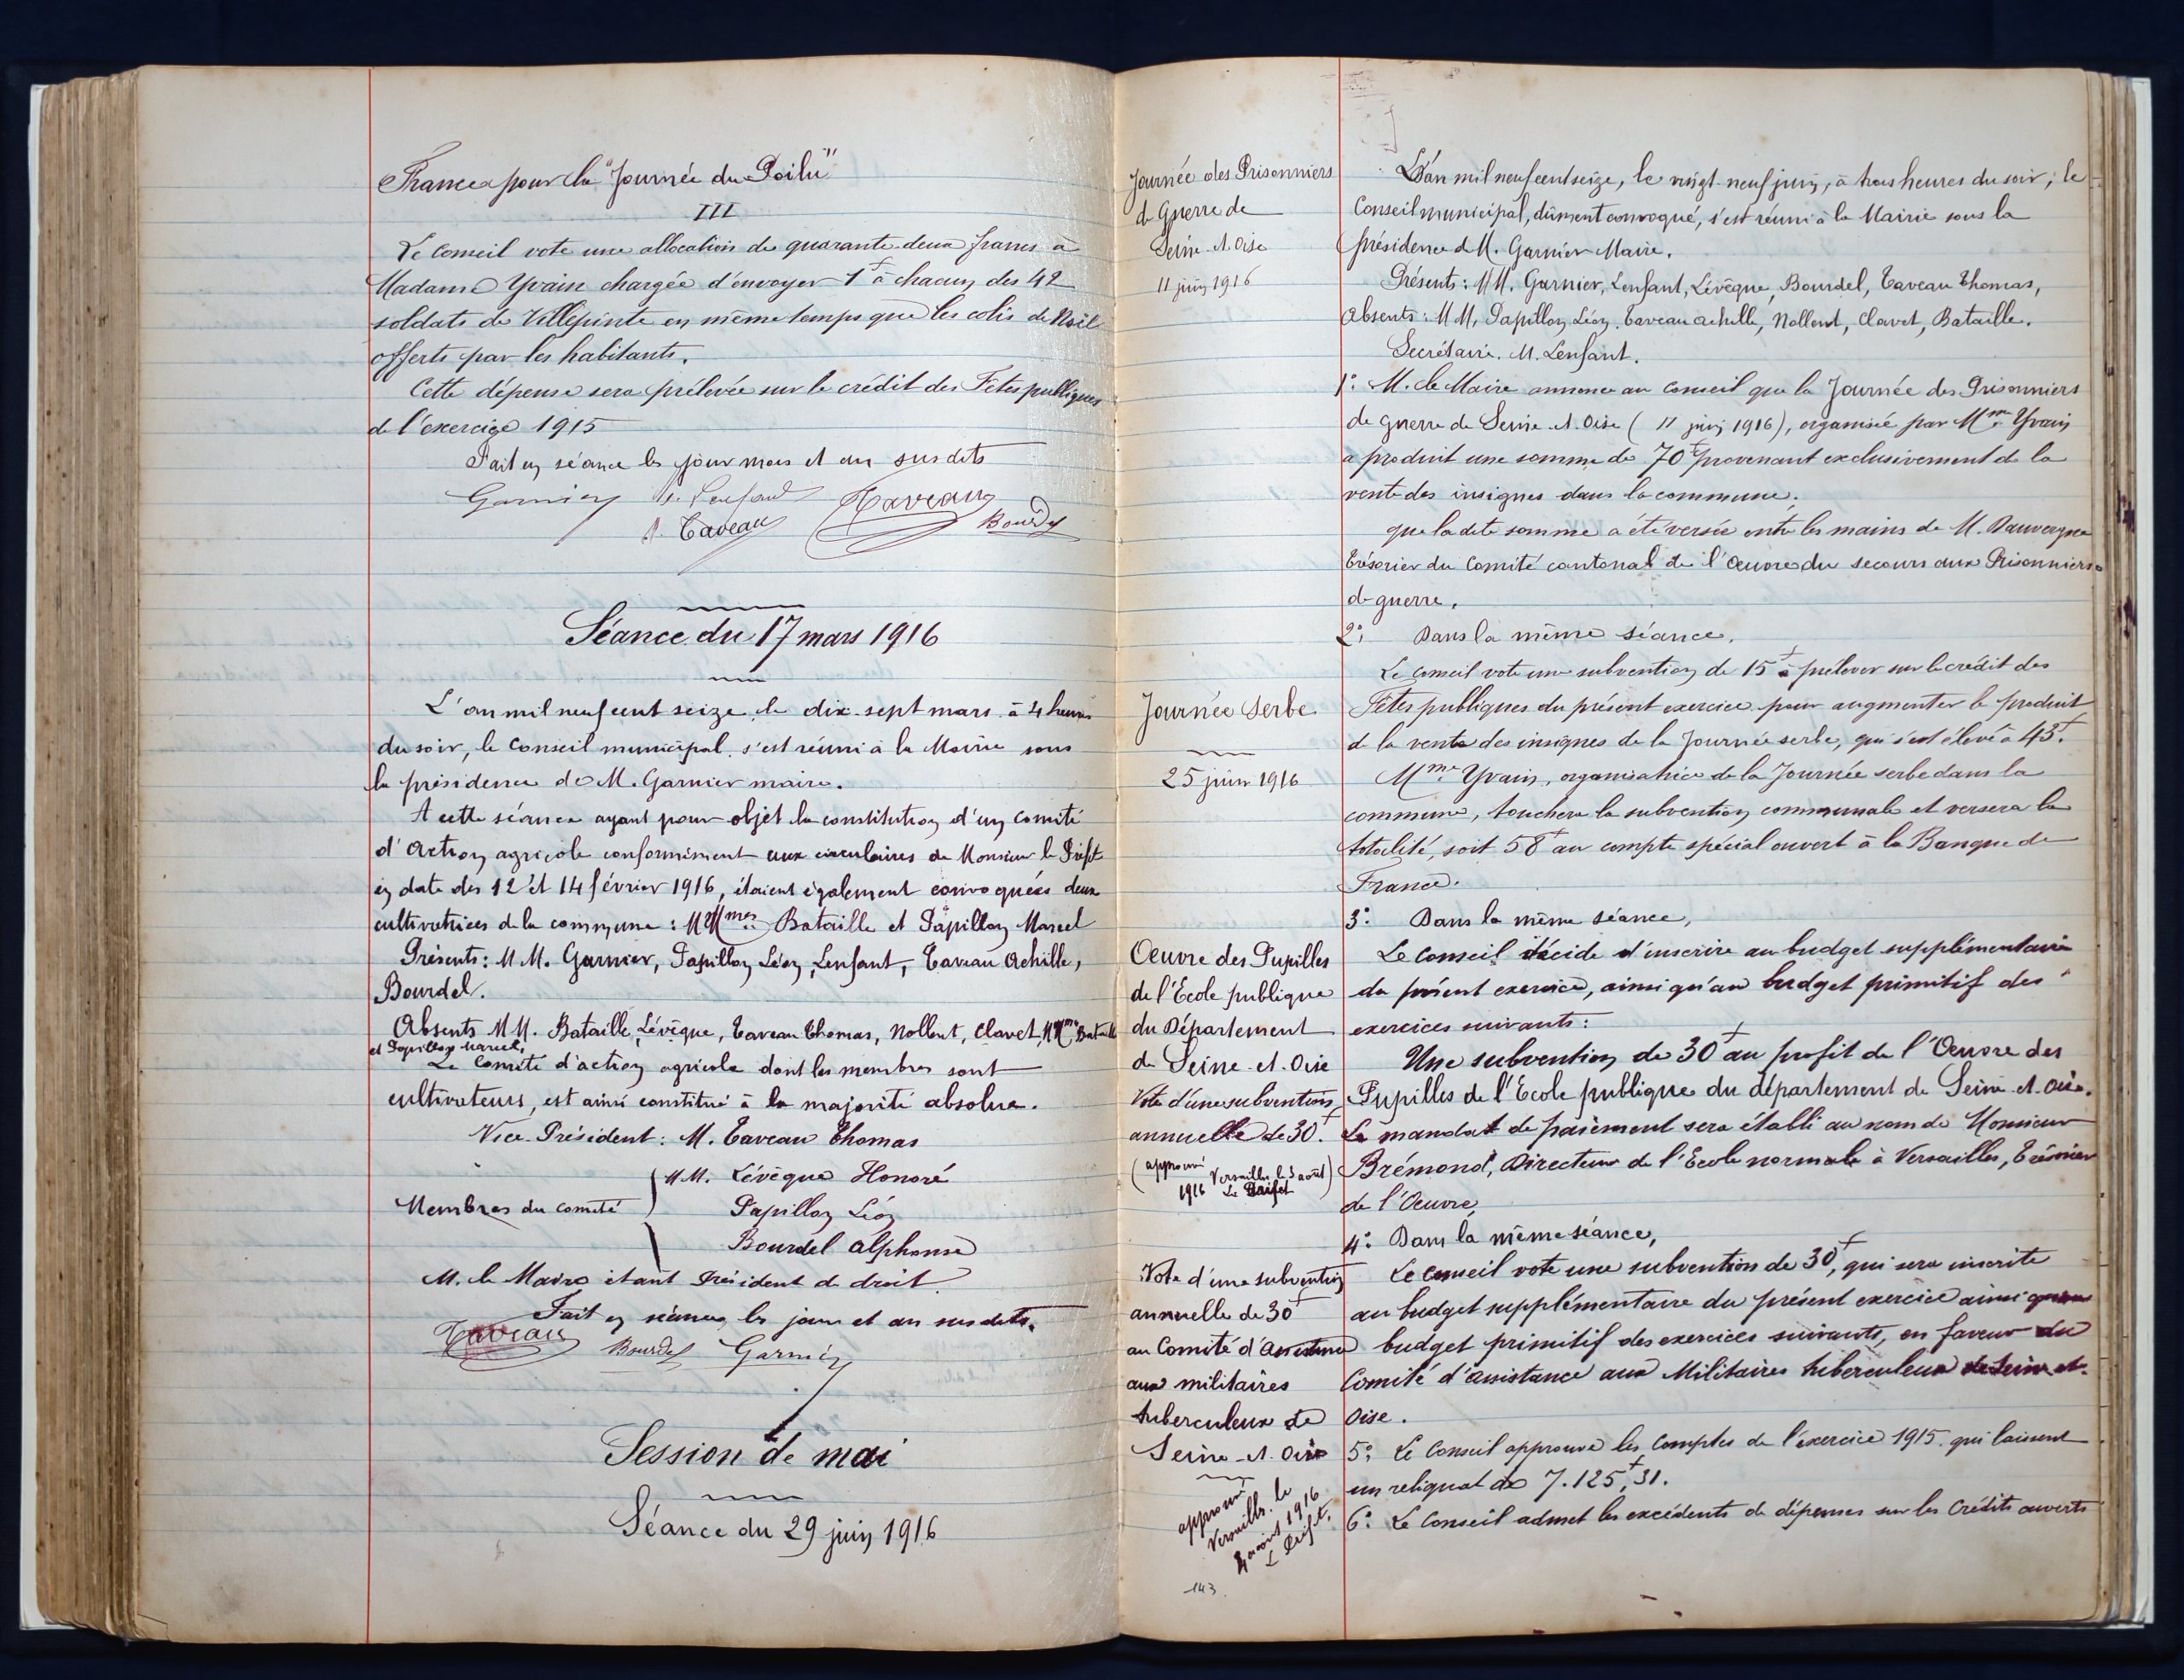 Francs pour la "Journée du Poilu"
III
Le Conseil vote une allocation de quarante deux francs à
Madame Yvain chargée d'envoyer 1f à chacun des 42
soldats de Villepinte en même temps que les colis de Noël
offerts par les habitants.
Cette dépense sera prélevée sur le crédit des Fêtes publiques
de l'exercice 1915
Fait en séance les jour mois et an susdits
Garnier A. Lenfant Taveau
A. Taveau Bourdel
Séance du 17 mars 1916
L'an mil neuf cent seize, le dix-sept mars à 4 heures
du soir, le Conseil municipal s'est réuni à la Mairie sous
la présidence de M. Garnier maire.
A cette séance ayant pour objet la constitution d'un Comité
d'Action agricole conformément aux circulaires de Monsieur le Préfet
en date des 12 et 14 février 1916, étaient également convoquées deux
cultivatrices de la commune : MMmes Bataille et Papillon Marcel
Présents : MM. Garnier, Papillon Léon, Lenfant, Taveau Achille,
Bourdel.
Absents MM. Bataille, Lévêque, Taveau Thomas, Nollent, Clavet, MMmes Bataille
et Papillon Marcel.
Le Comité d'action agricole dont les membres sont
cultivateurs, est ainsi constitué à la majorité absolue.
Vice-Président : M. Taveau Thomas
MM. Lévêque Honoré
Membres du comité Papillon Léon
Bourdel Alphonse
M. le Maire étant Président de droit.
Fait en séance, les jour et an susdits.
Taveau Bourdel Garnier
Session de mai
Séance du 29 juin 1916
Journée des Prisonniers
de Guerre de
Seine-et-Oise
11 juin 1916
L'an mil neuf cent seize, le vingt-neuf juin, à trois heures du soir, le
Conseil municipal, dûment convoqué, s'est réuni à la Mairie sous la
présidence de M. Garnier Maire.
Présents : MM. Garnier, Lenfant, Lévêque, Bourdel, Taveau Thomas,
Absents : MM. Papillon Léon, Taveau Achille, Nollent, Clavet, Bataille.
Secrétaire. M. Lenfant.
1° M. le Maire annonce au Conseil que la Journée des Prisonniers
de guerre de Seine-et-Oise (11 juin 1916), organisée par Mme Yvain
a produit une somme de 70f provenant exclusivement de la
vente des insignes dans la commune.
que ladite somme a été versée entre les mains de M. Dauvergne
Trésorier du Comité cantonal de l'Œuvre du secours aux Prisonniers
de guerre.
2° Dans la même séance,
Le Conseil vote une subvention de 15f à prélever sur le crédit des
Journée Serbe
25 juin 1916
Fêtes publiques du présent exercice pour augmenter le produit
de la vente des insignes de la Journée serbe, qui s'est élevé à 43f.
Mme Yvain, organisatrice de la Journée serbe dans la
commune, touchera la subvention communale et versera la
totalité, soit 58f au compte spécial ouvert à la Banque de
France.
3° Dans la même séance,
Oeuvre des Pupilles
de l'Ecole publique
du Département
de Seine-et-Oise
Vote d'une subvention
annuelle de 30f.
(approuvé
Versailles le 3 août
1916 Le Préfet)
Le Conseil décide d'inscrire au budget supplémentaire
du présent exercice, ainsi qu'au budget primitif des
exercices suivants :
Une subvention de 30f au profit de l'Oeuvre des
Pupilles de l'Ecole publique du département de Seine-et-Oise.
Le mandat de paiement sera établi au nom de Monsieur
Brémond, Directeur de l'Ecole normale à Versailles, Trésorier
de l'Oeuvre,
4° Dans la même séance,
Vote d'une subvention
annuelle de 30f
au Comité d'Assistance
aux militaires
tuberculeux de
Seine-et-Oise
approuvé
Versailles le
4 août 1916
Le Préfet,
Le Conseil vote une subvention de 30f, qui sera inscrite
au budget supplémentaire du présent exercice ainsi qu'au
budget primitif des exercices suivants, en faveur du
Comité d'assistance aux Militaires tuberculeux de Seine-et-
Oise.
5° Le Conseil approuve les Comptes de l'exercice 1915 qui laissent
un reliquat de 7.125f,31.
6° Le Conseil admet les excédents de dépenses sur les Crédits ouverts
143